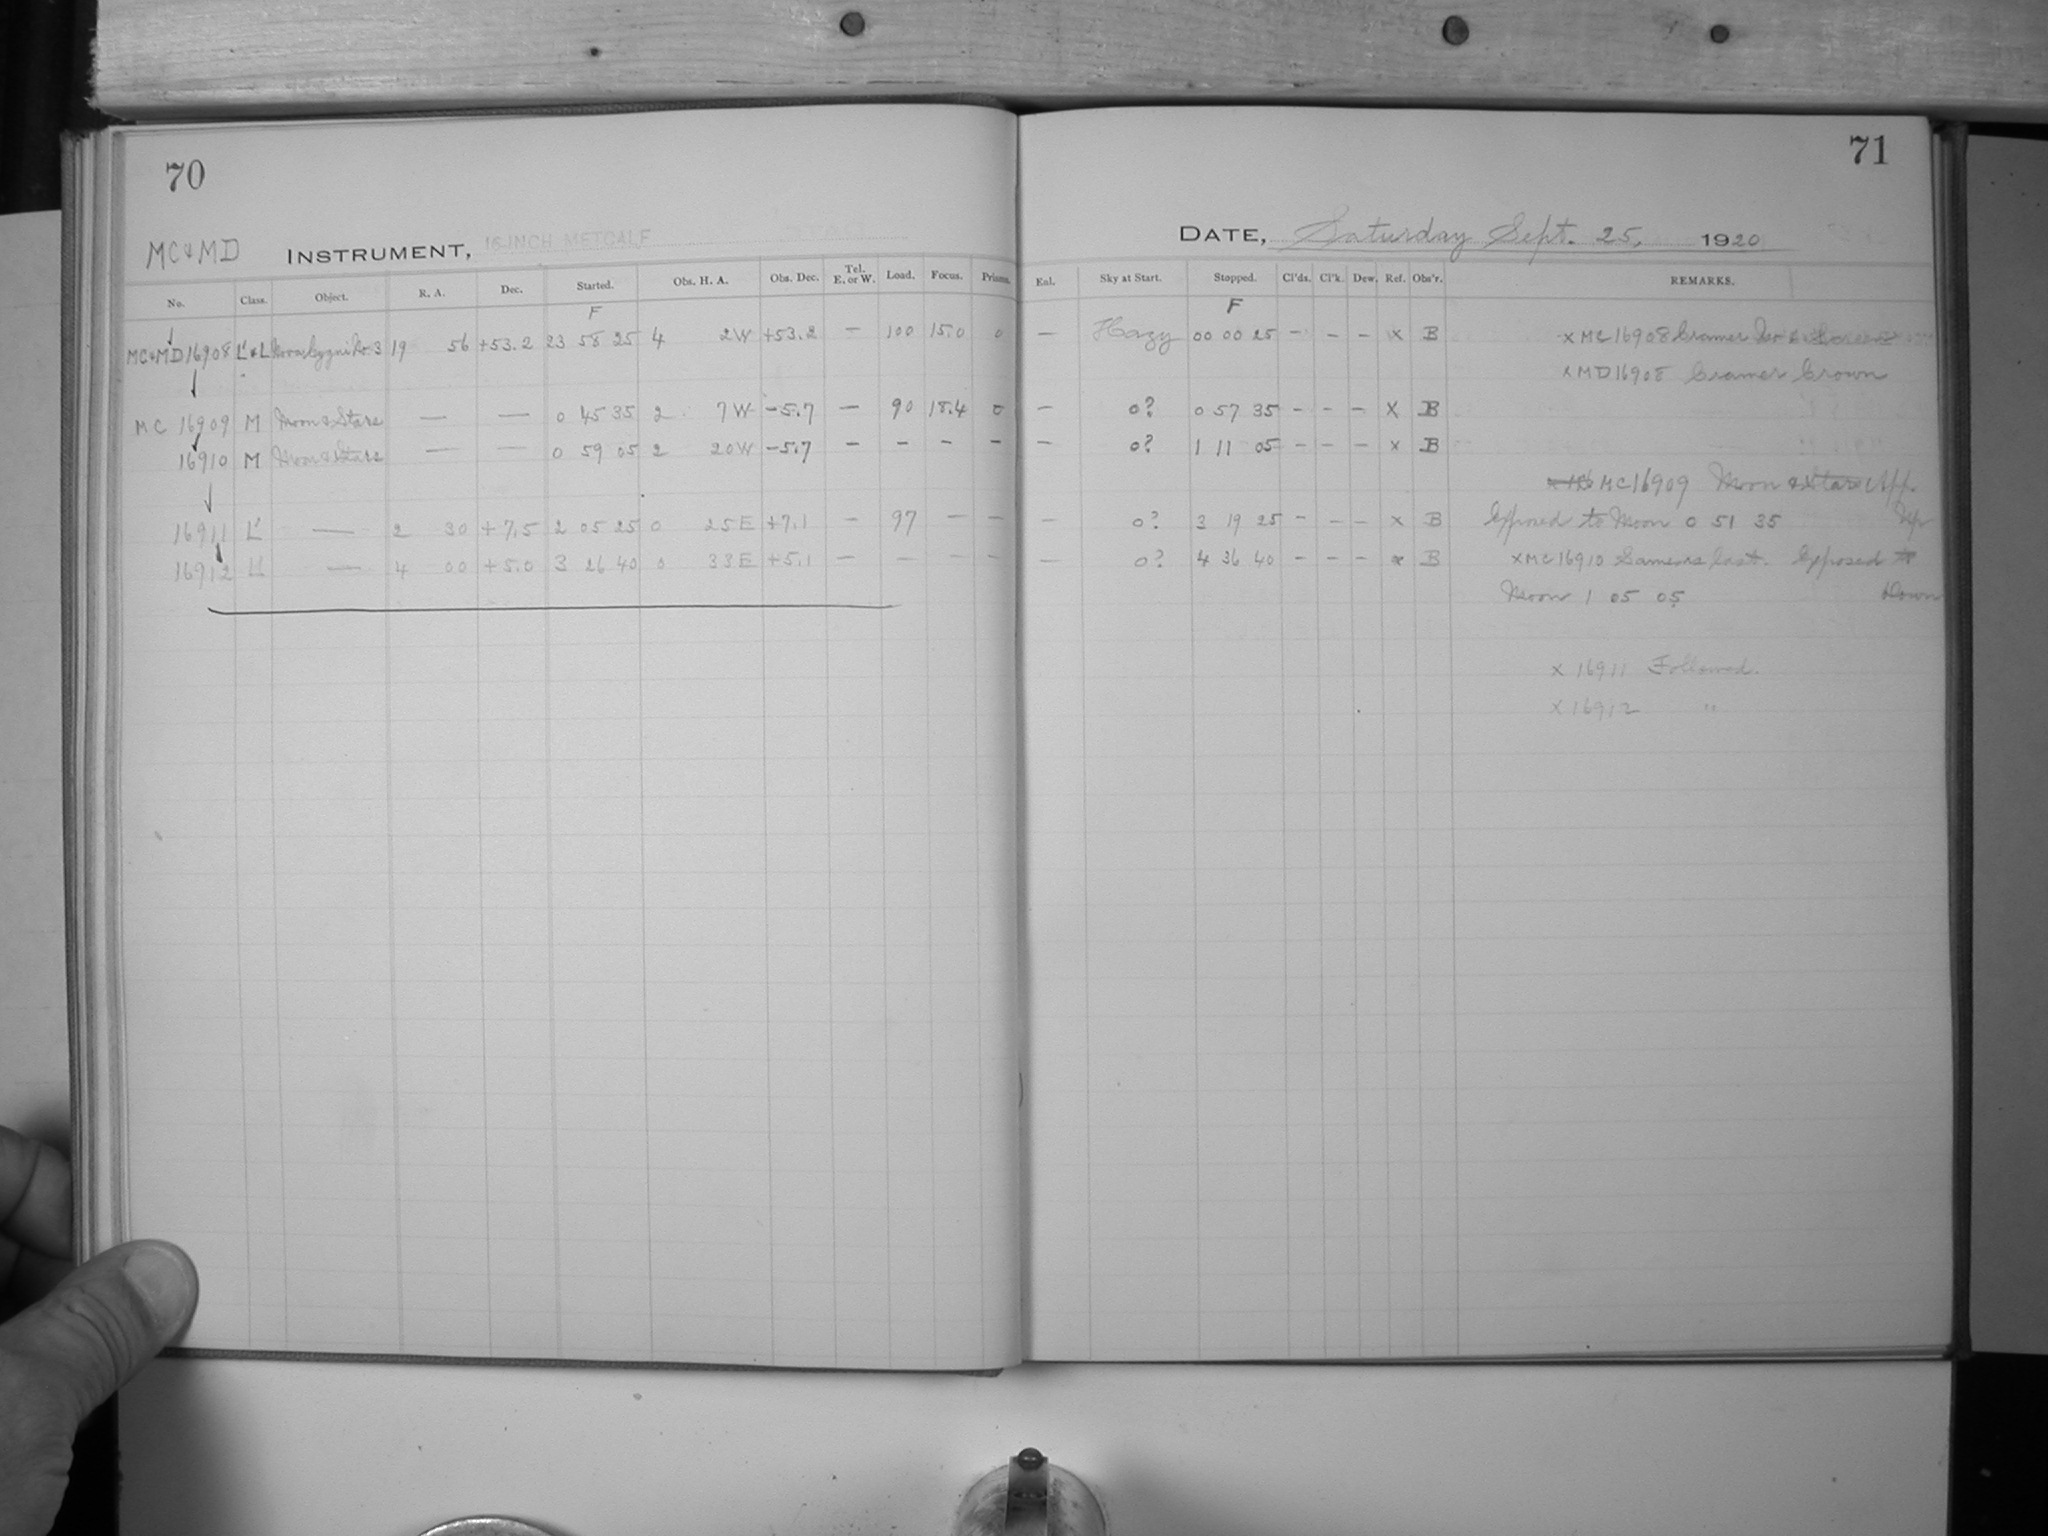 70
MC & MD INSTRUMENT, 16-INCH METCALF
No. Class. Object. R. A. Dec. Started. Obs. H. A. Obs. Dec. Tel. E. or W. Load. Focus. Prisms.
F
MC & MD 16908 L' & L Nova Cygni No. 3 19 56 +53.2 23 58 25 4 2W +53.2 — 100 15.0 0
MC 16909 M Moon & Stars — — 0 45 35 2 7W -5.7 — 90 15.4 0
16910 M Moon & Stars — — 0 59 05 2 20W -5.7 — - - -
16911 L' — 2 30 +7.5 2 05 25 0 25E +7.1 — 97 — —
16912 L' — 4 00 +5.0 3 26 40 0 33E +5.1 — — — —
71
DATE, Saturday Sept. 25, 1920
Enl. Sky at Start. Stopped. Cl'ds. Cl'k. Dew. Ref. Obs'r. REMARKS.
F
— Hazy 00 00 25 - - - x B x MC 16908 Cramer
x MD 16908 Cramer Crown
— 0? 0 57 35 - - - x B
— 0? 1 11 05 - - - x B
MC 16909 Moon & Stars
— 0? 3 19 25 - - - x B Exposed to Moon 0 51 35 Up
— 0? 4 36 40 - - - x B x MC 16910 Same as last. Exposed to
Moon 1 05 05 Down
x 16911 Followed.
x 16912 "